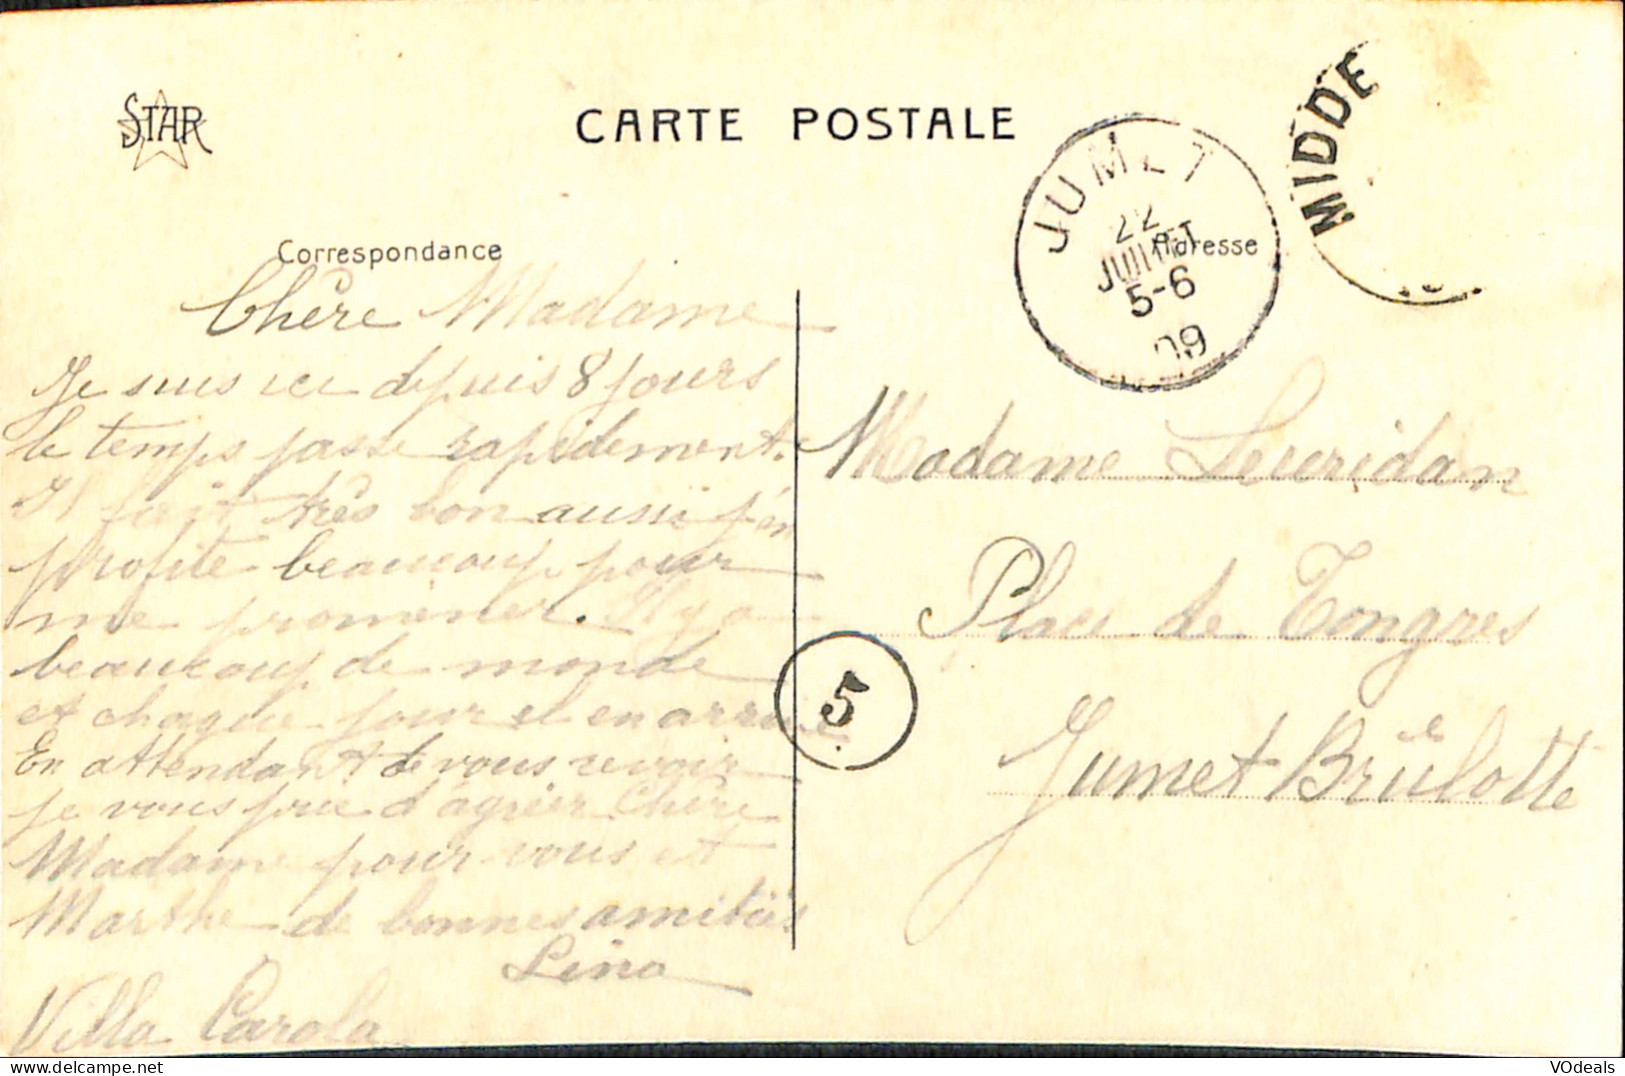 STAR
CARTE POSTALE
MIDDE
JUMET
22
JUILLET
5-6
09
Correspondance
Adresse
Chère Madame
Je suis ici depuis 8 jours
le temps passe rapidement.
Il fait très bon aussi j'en
profite beaucoup pour
me promener. Il y a
beaucoup de monde
et chaque jour il en arrive
En attendant de vous revoir
je vous prie d'agréer Chère
Madame pour vous et
Marthe de bonnes amitiés
Lina
Villa Carola
5
Madame Leuridan
Place de Tongres
Jumet Brûlotte
VOdeals